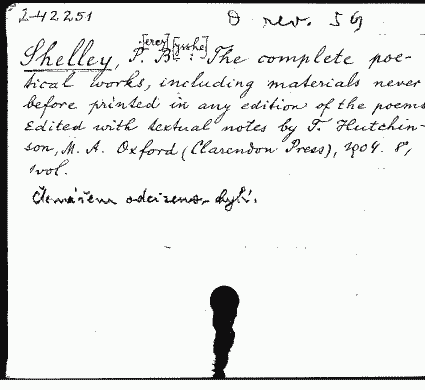 2-42251
D rev. 59
[ercy] [ysshe]
Shelley, P. B. : The complete poe-
tical works, including materials never
before printed in any edition of the poems
Edited with textual notes by T. Hutchin-
son, M. A. Oxford (Clarendon Press), 1904. 8°,
1vol.
Čtenářem odcizeno